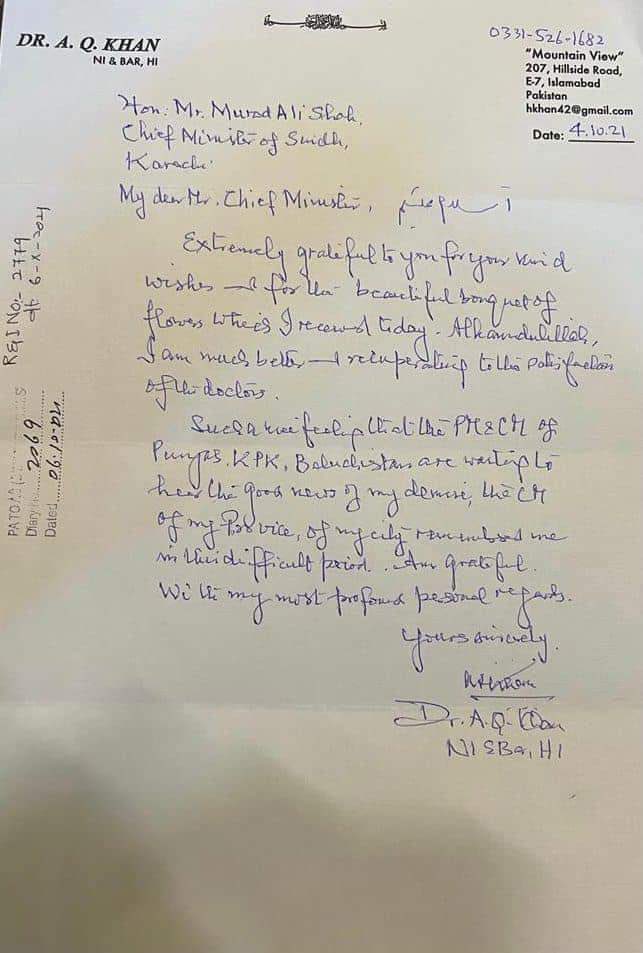 DR. A. Q. KHAN
NI & BAR, HI
0331-526-1682
"Mountain View"
207, Hillside Road,
E-7, Islamabad
Pakistan
hkhan42@gmail.com
Date: 4.10.21
Hon. Mr. Murad Ali Shah,
Chief Minister of Sindh,
Karachi.
My dear Mr. Chief Minister,
Extremely grateful to you for your kind
wishes & for the beautiful bouquet of
flowers which I received today. Alhamdulillah,
I am much better & recuperating to the satisfaction
of the doctors.
feeling that the PM & CM of
Punjab, KPK, Baluchistan are waiting to
hear the good news of my demise, the CM
of my Province, of my city remembered me
in this difficult period. Am grateful.
With my most profound personal regards.
Yours sincerely.
Dr. A.Q. Khan
NI & Bar, HI
R&I No:- 2779
dt 6-X-2021
Diary No. 2069
Dated